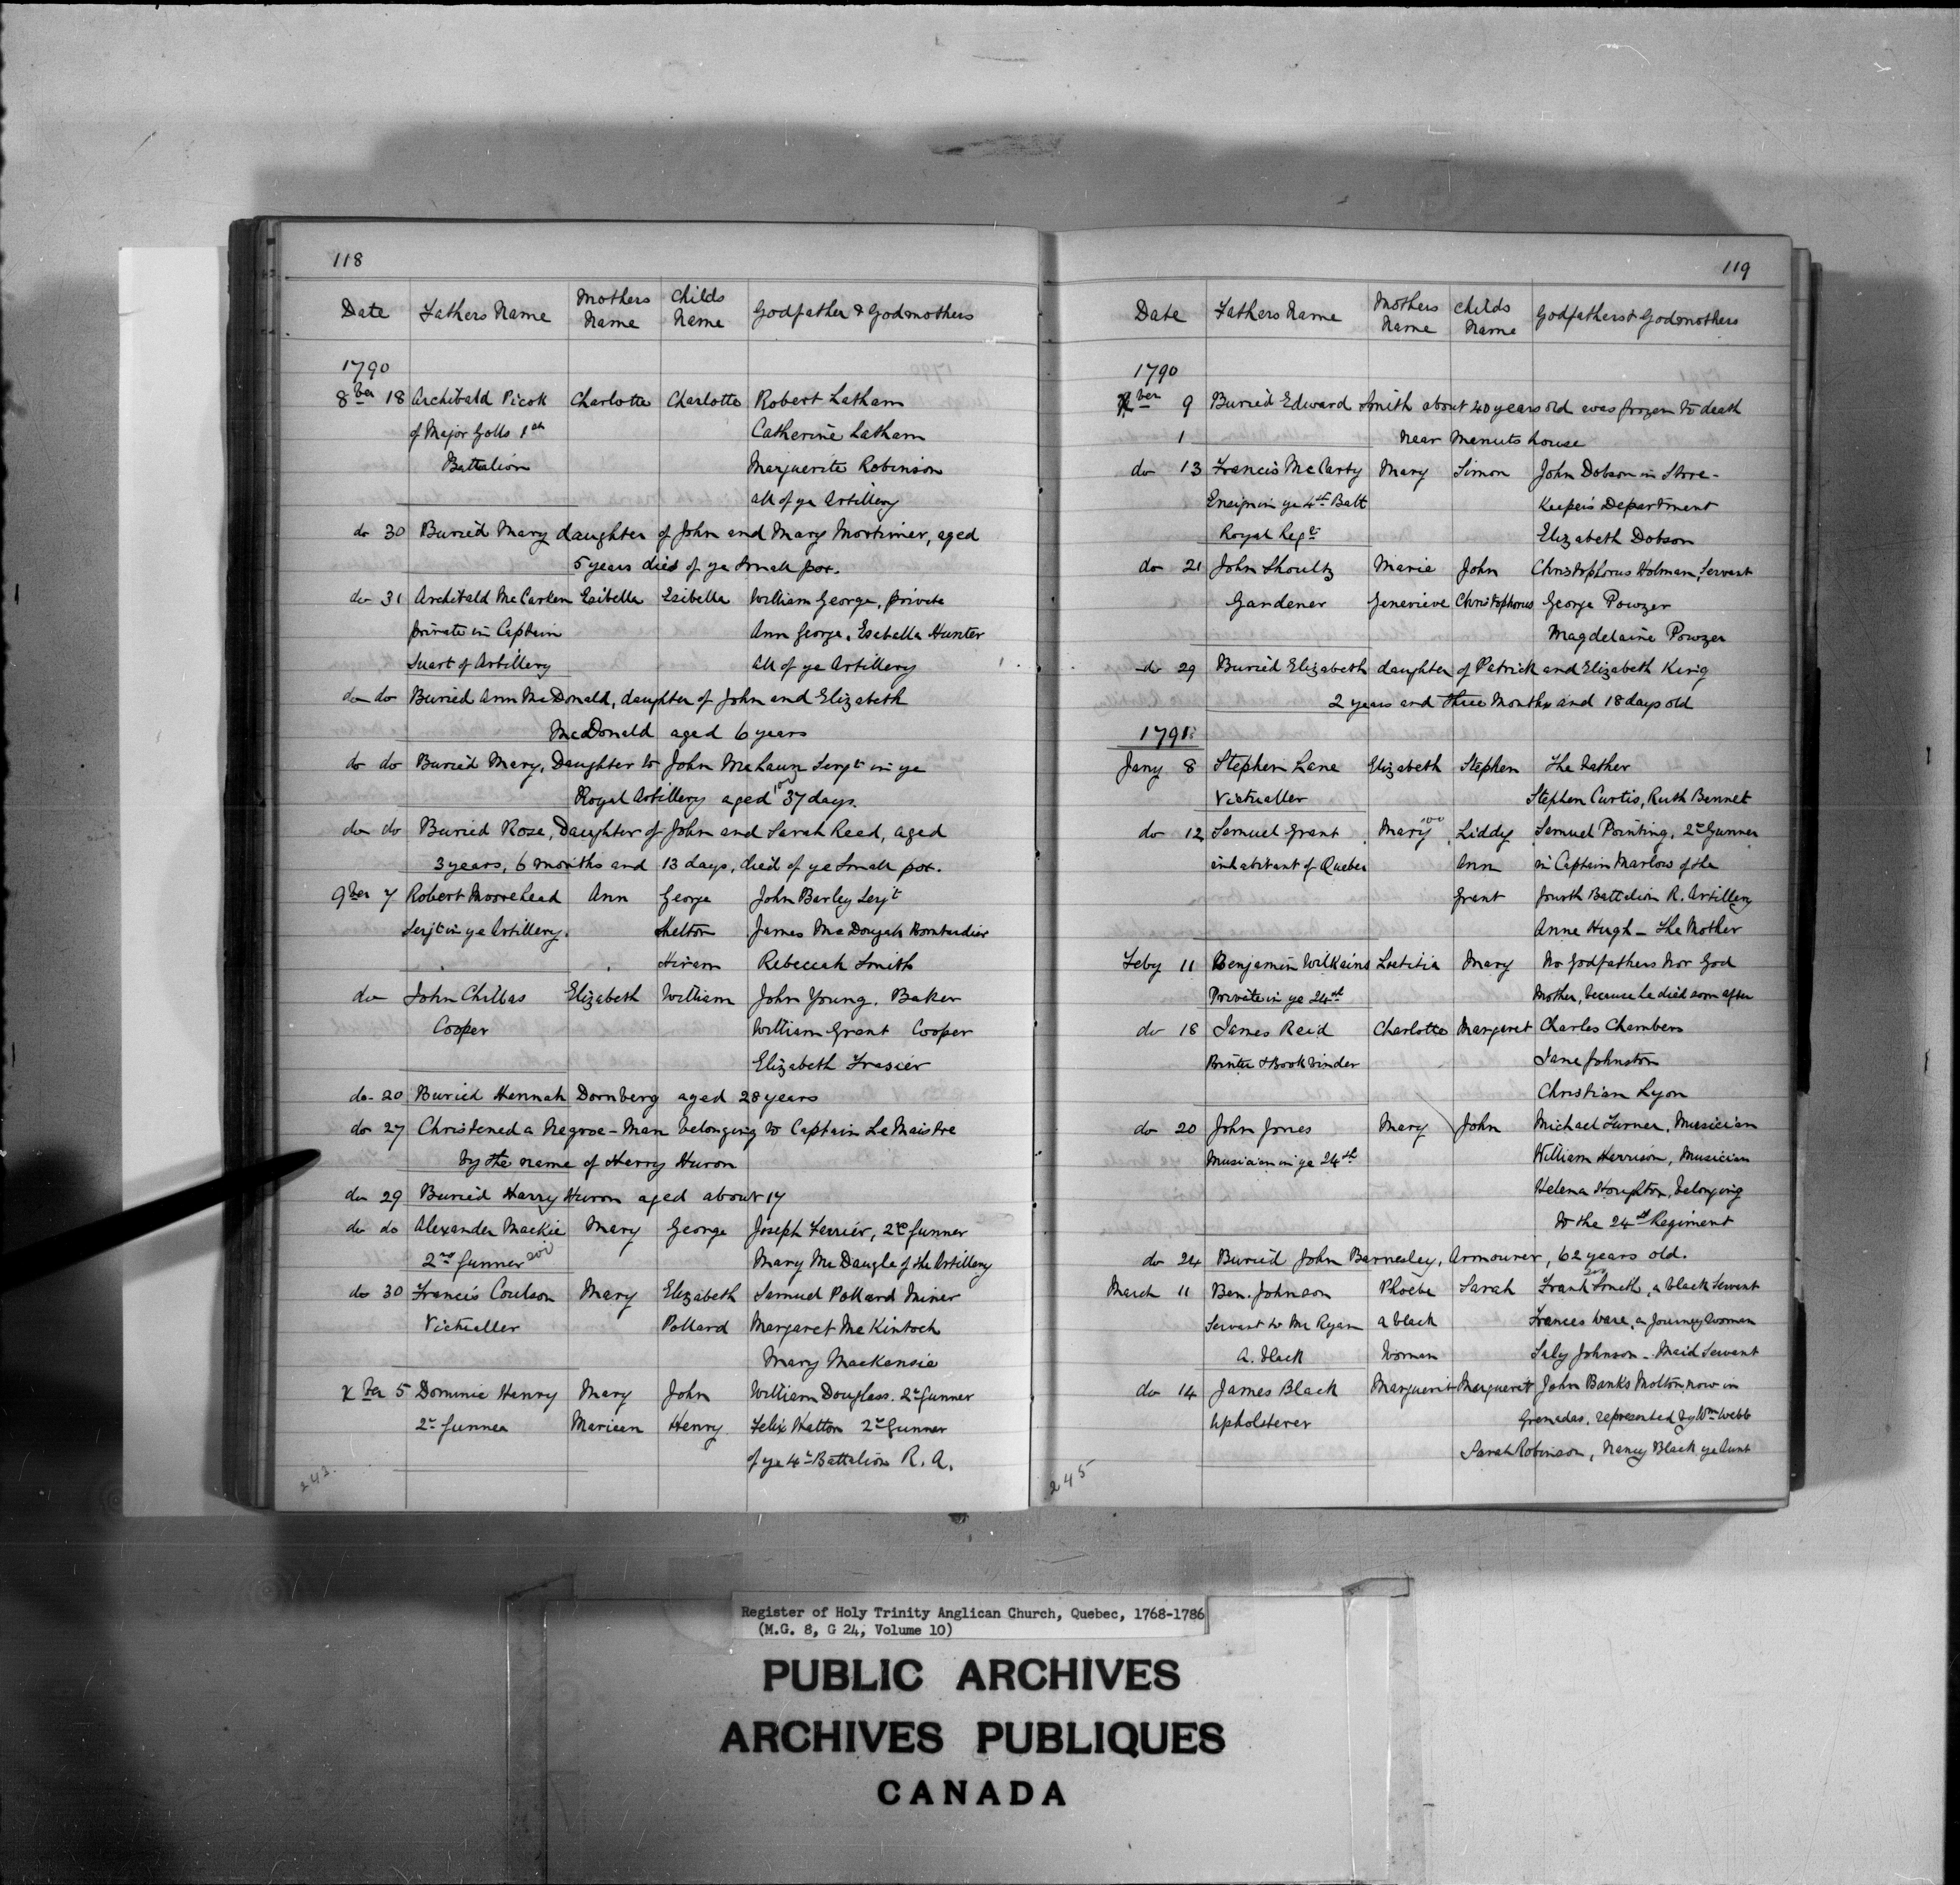 118
Date Fathers Name Mothers Name Childs Name Godfather & Godmothers
1790
8ber 18 Archibald Picok Charlotte Charlotte Robert Latham
of Major Golls 1st Catherine Latham
Battalion Marguerite Robinson
all of ye Artillery
do 30 Buried Mary daughter of John and Mary Mortimer, aged
5 years died of ye Small pox.
do 31 Archibald McCarlen Esibella Esibella William George, private
private in Captain Ann George, Esabella Hunter
Suart of Artillery All of ye Artillery
do do Buried Ann McDonald, daughter of John and Elizabeth
McDonald aged 6 years
do do Buried Mary, Daughter to John Serjt in ye
Royal Artillery aged 37 days.
do do Buried Rose, Daughter of John and Sarah Reed, aged
3 years, 6 months and 13 days, died of ye Small pox.
9ber 7 Robert Moorehead Ann George John Barley Serjt
Serjt in ye Artillery. Shelton James McDougals Bombardier
Hiram Rebeccah Smith
do John Chillas Elizabeth William John Young. Baker
Cooper William Grant Cooper
Elizabeth Frasier
do 20 Buried Hennah Dornberg aged 28 years
do 27 Christened a Negroe-Man belonging to Captain Le Maistre
by the name of Harry Huron
do 29 Buried Harry Huron aged about 17
do do Alexander Mackie Mary George Joseph Ferrier, 2d Gunner
2nd Gunner Mary McDaugle of the Artillery
do 30 Francis Coulson Mary Elizabeth Samuel Pollard Miner
Victualler Pollard Margaret McKintoch
Mary Mackensie
xber 5 Dominic Henry Mary John William Douglass. 2d Gunner
2d Gunner Marieen Henry Felix Hatton 2d Gunner
of ye 4th Battalion R. A.
243.
119
Date Fathers Name Mothers Name Childs Name Godfathers & Godmothers
1790
Xber 9 Buried Edward Smith about 40 years old was frozen to death
1 near Menuts house
do 13 Francis McCarty Mary Simon John Dobson in Store-
Ensign in ye 4th Batt Keepers Department
Royal Regt Elizabeth Dobson
do 21 John Shoultz Marie John Christophorus Holman, Servant
Gardener Genevieve Christophorus George Powzer
Magdelaine Powzer
do 29 Buried Elizabeth daughter of Patrick and Elizabeth King
2 years and three Months and 18 days old
1791
Jany 8 Stephen Lane Elizabeth Stephen The Father
Victualler Stephen Curtis, Ruth Bennet
do 12 Samuel Grant Mary Liddy Samuel Pointing, 2d Gunner
inhabitant of Quebec Ann in Captain Marlow of the
Grant fourth Battalion R. Artillery
Anne Hugh - The Mother
Feby 11 Benjamin Wilkins Laetitia Mary No Godfathers Nor God
Private in ye 24th Mother, because he died soon after
do 18 James Reid Charlotte Margaret Charles Chambers
Printer & Bookbinder Jane Johnston
Christian Lyon
do 20 John Jones Mary John Michael Turner, Musician
Musician in ye 24th William Harrison, Musician
Helena Houghton, belonging
to the 24th Regiment
do 24 Buried John Barnesley, Armourer, 62 years old.
March 11 Ben. Johnson Phoebe Sarah Frank Smith, a black Servant
Servant to Mr Ryan a black Frances Ware, a Journey Woman
a. black Woman Saly Johnson - Maid Servant
do 14 James Black Marguerit Margueret John Banks Molton, now in
Upholsterer Grenadas, represented by Wm Webb
Sarah Robinson, Nancy Black ye Aunt
245
Register of Holy Trinity Anglican Church, Quebec, 1768-1786
(M.G. 8, G 24, Volume 10)
PUBLIC ARCHIVES
ARCHIVES PUBLIQUES
CANADA